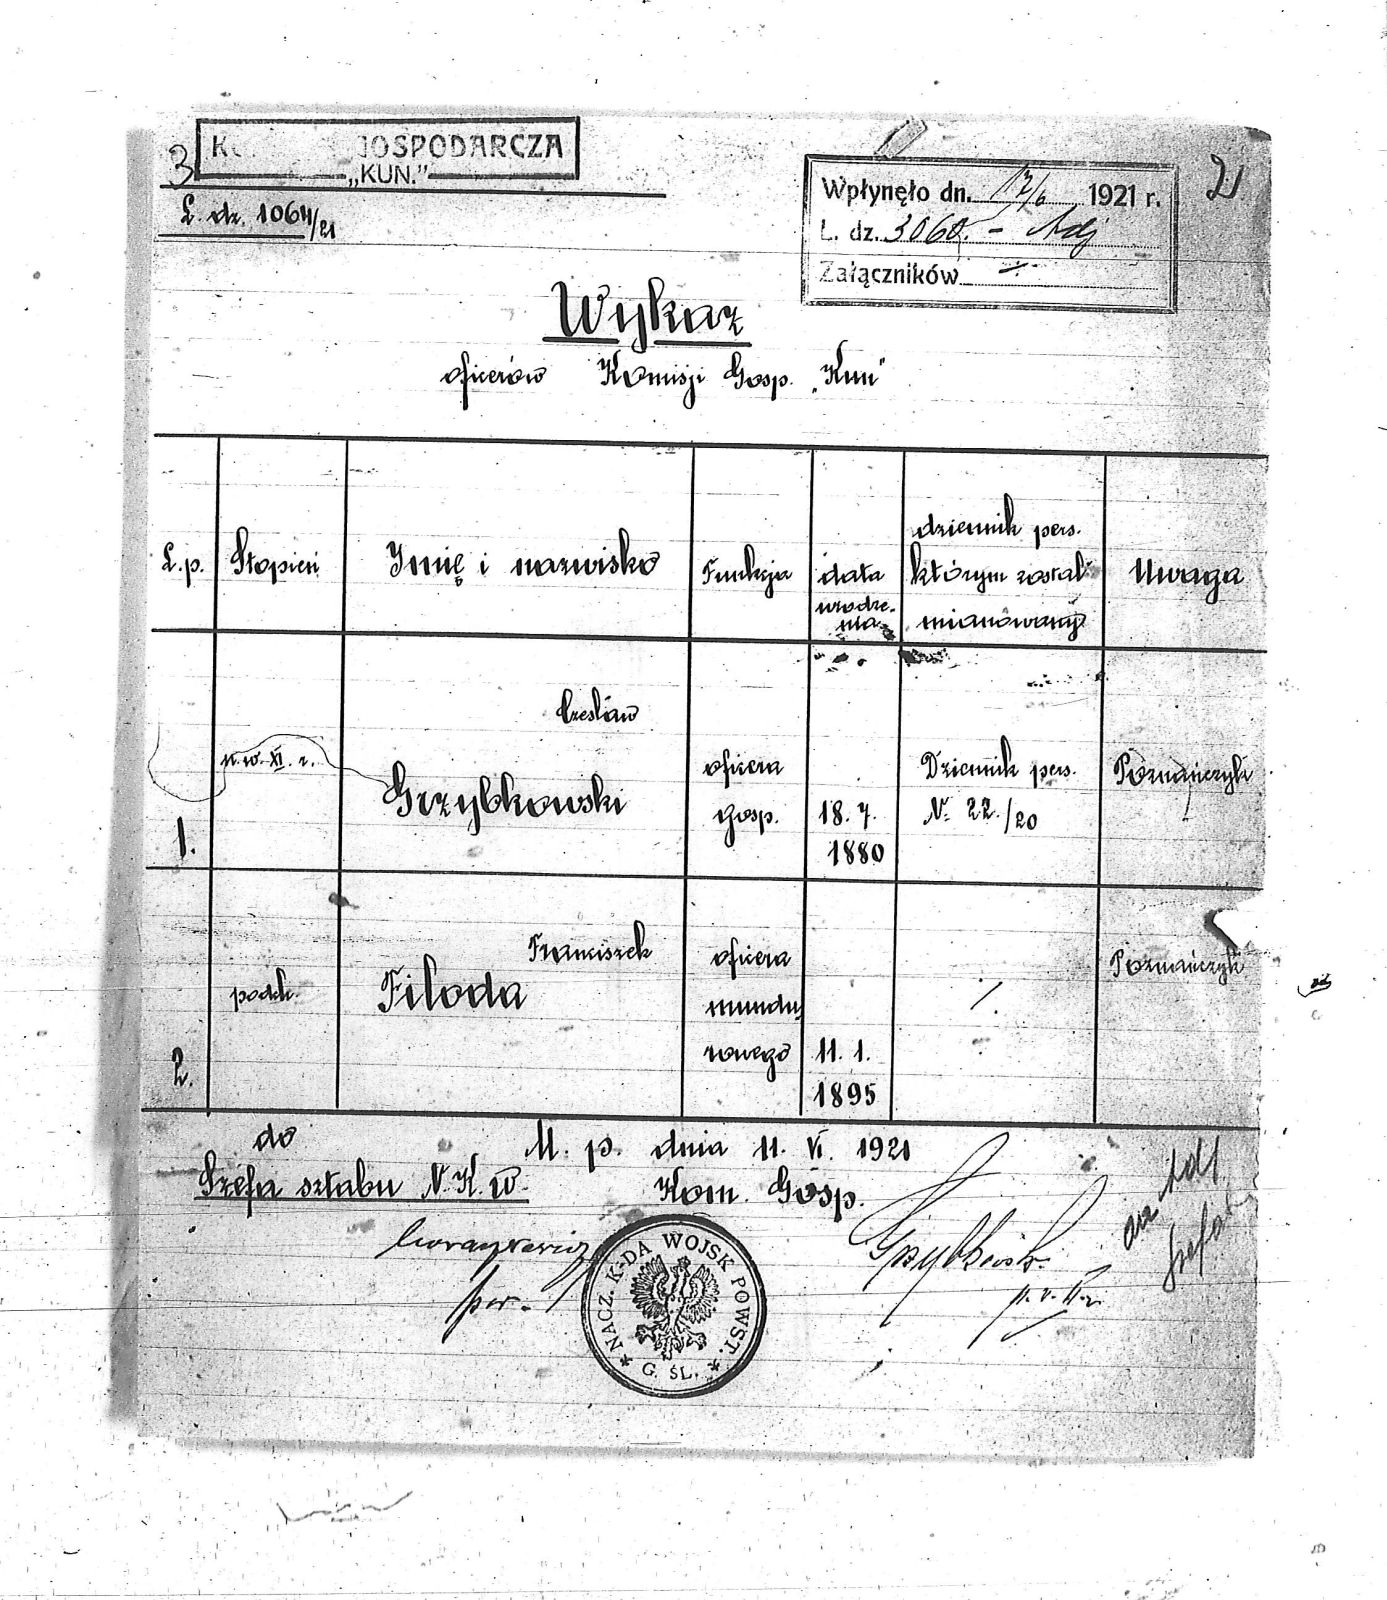 3
GOSPODARCZA
„KUN.”
L. dz. 1064/21
Wpłynęło dn. 17/6 1921 r.
L. dz. 3060. - Adj
Załączników
2
Wykaz
oficerów Komisji Gosp. „Kun”
L.p. Stopień Imię i nazwisko Funkcja data urodze-nia dziennik pers. którym został mianowany Uwaga
Czesław
p.w. XI. r. Grzybkowski oficera gosp. Dziennik pers. Nr. 22./20 Poznańczyk
1. 18. 7. 1880
Franciszek
podch. Filoda oficera mundu rowego /. Poznańczyk
2. 11. 1. 1895
do M. p. dnia 11. VI. 1921
Szefa sztabu N. K. W. Kom. Gosp.
por.
NACZ. K-DA WOJSK POWST.
* G. ŚL. *